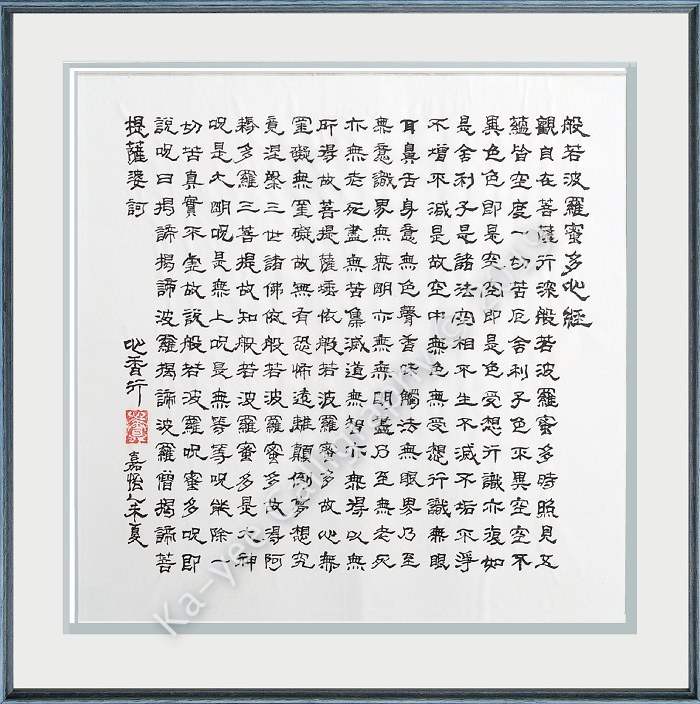 般若波羅蜜多心經
觀自在菩薩行深般若波羅蜜多時照見五
蘊皆空度一切苦厄舍利子色不異空空不
異色色即是空空即是色受想行識亦復如
是舍利子是諸法空相不生不滅不垢不淨
不增不減是故空中無色無受想行識無眼
耳鼻舌身意無色聲香味觸法無眼界乃至
無意識界無無明亦無無明盡乃至無老死
亦無老死盡無苦集滅道無智亦無得以無
所得故菩提薩埵依般若波羅蜜多故心無
罣礙無罣礙故無有恐怖遠離顛倒夢想究
竟涅槃三世諸佛依般若波羅蜜多故得阿
耨多羅三菩提故知般若波羅蜜多是大神
呪是大明呪是無上呪是無等等呪能除一
切苦真實不虛故說般若波羅呪蜜多呪即
說呪曰揭諦揭諦波羅揭諦波羅僧揭諦菩
提薩婆訶
心香行
嘉怡乙未夏
Ka-yee Calligraphy